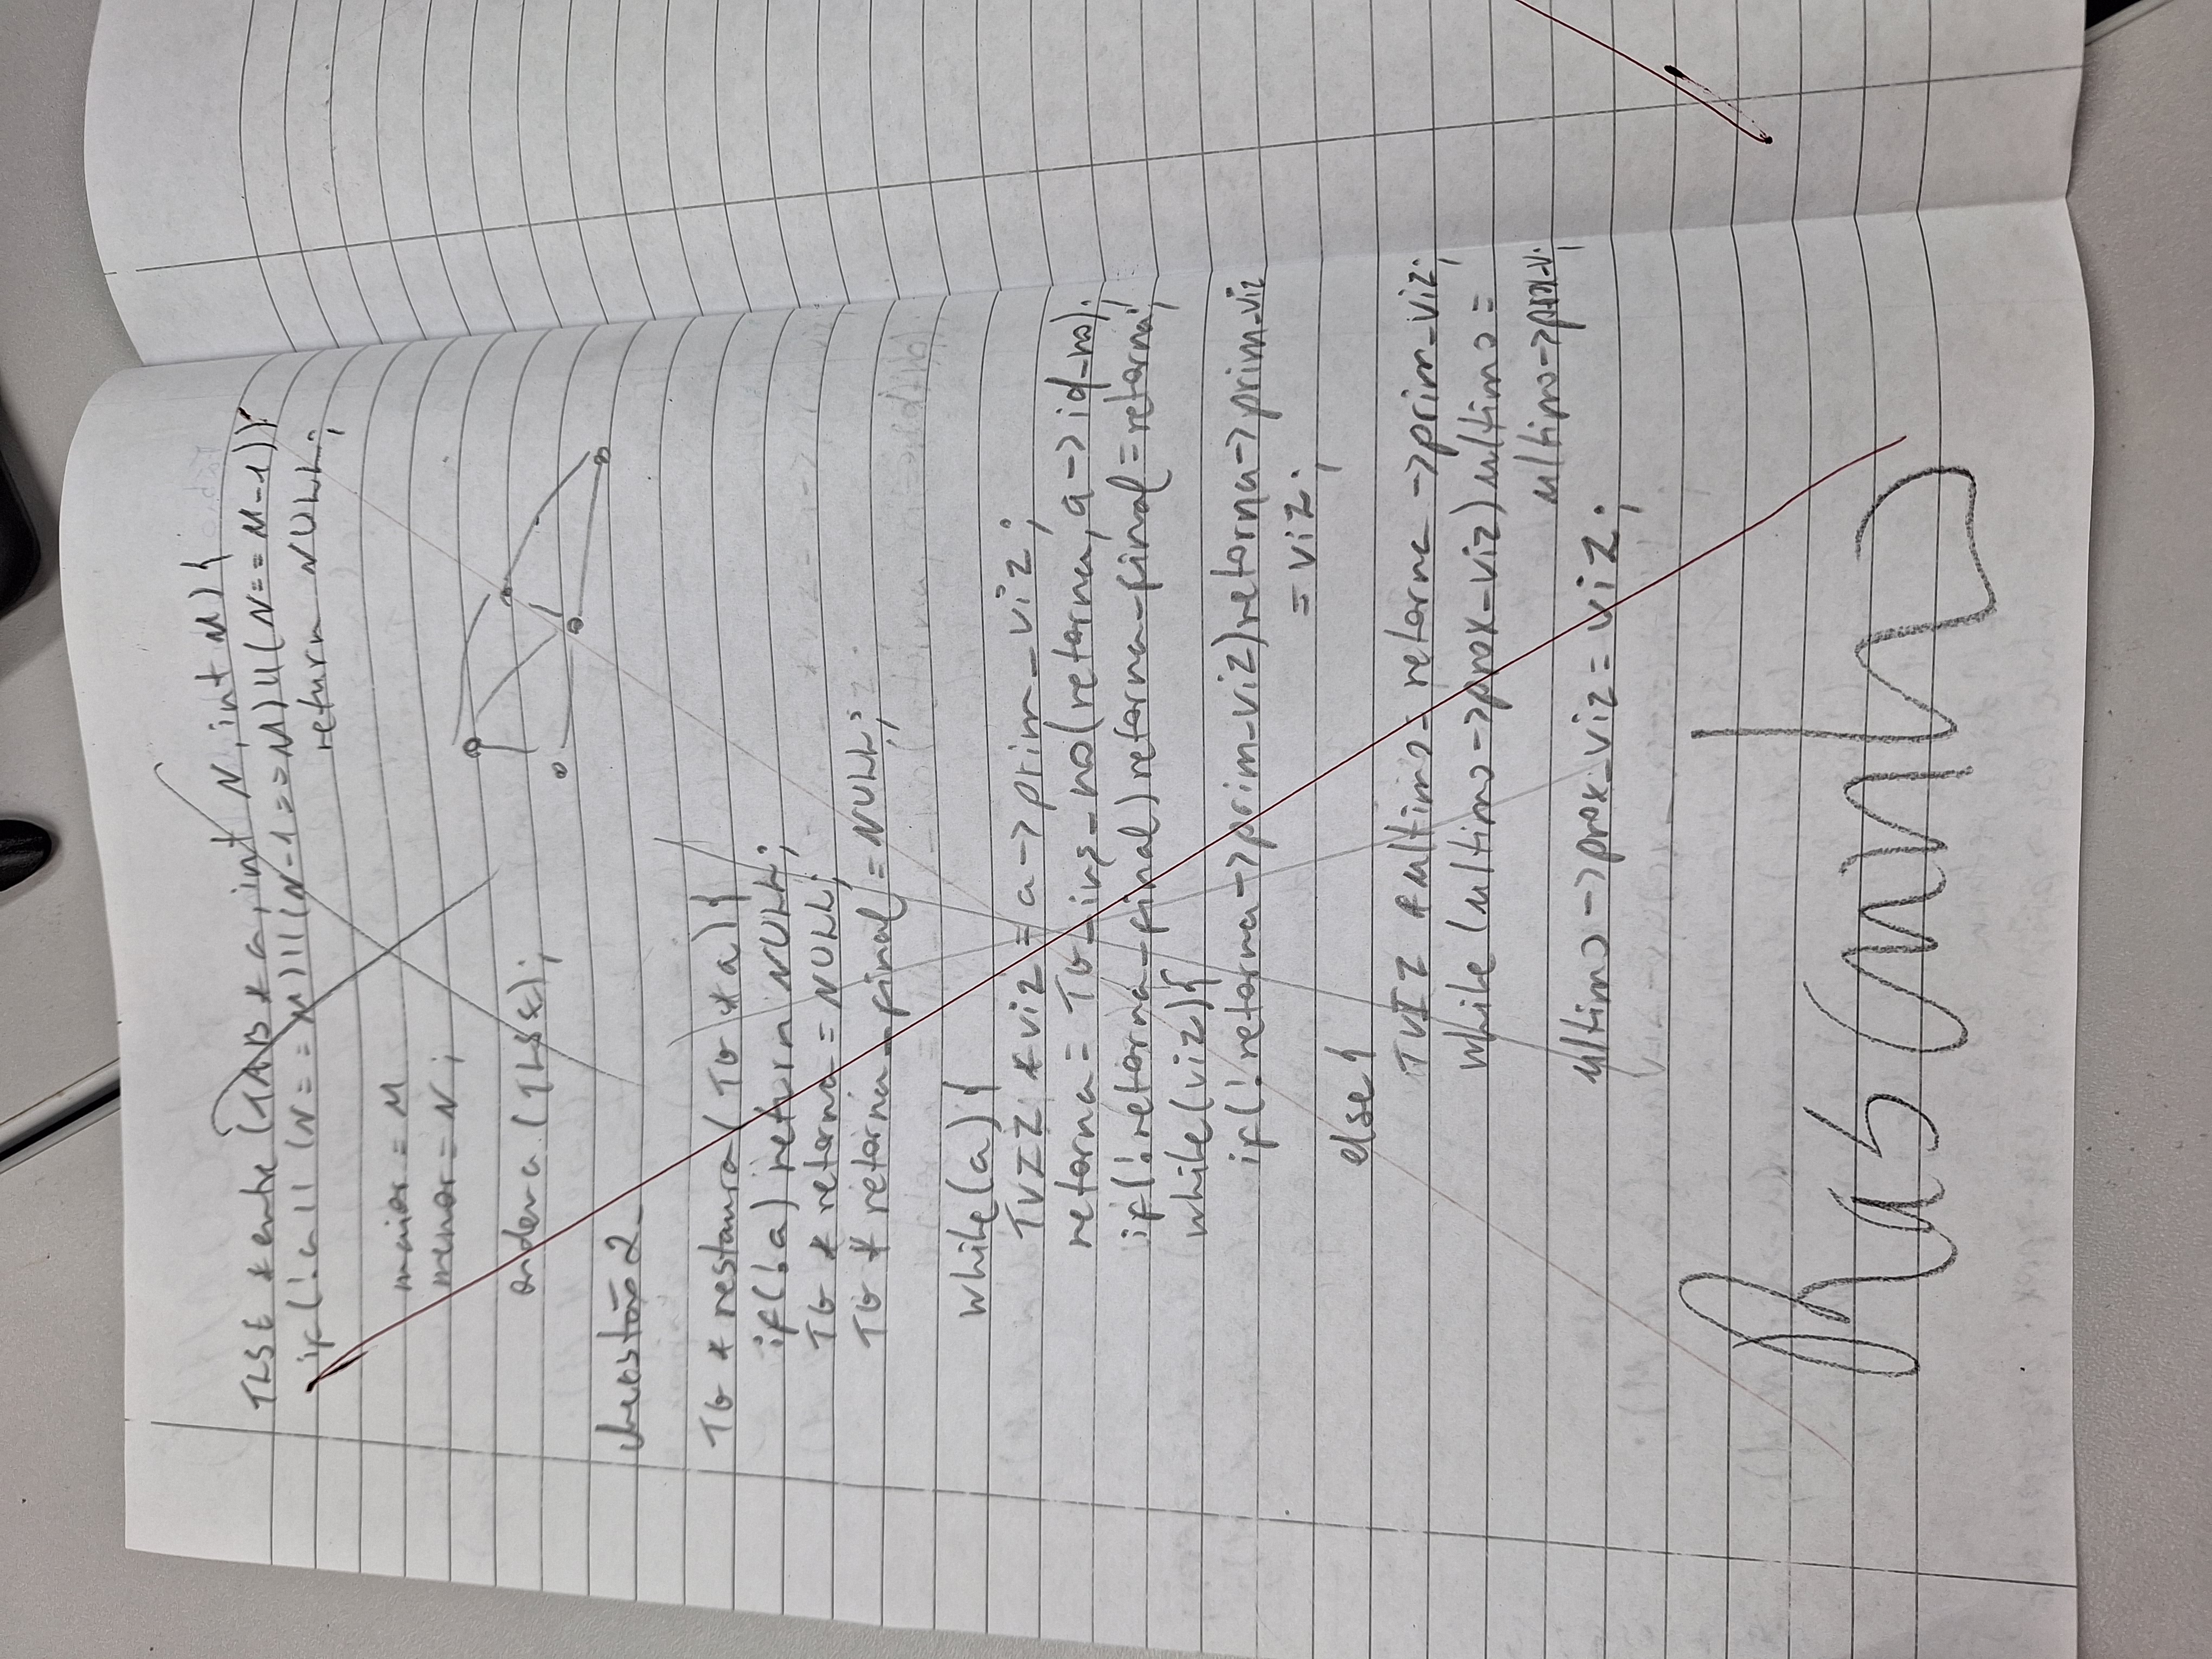 TLSE * entre (TAB * a, int N, int M) {
if(!a || (N == M) || (N-1 == M) || (N == M-1))
return NULL;
maior = M
menor = N;
ordena (TLSE);
Questão 2
TG * restaura( TG * a) {
if(!a) return NULL;
TG * retorna = NULL;
TG * retorna_final = NULL;
while(a) {
TVIZ *viz = a->prim_viz;
retorna = TG_ins_no(retorna, a->id_no);
if(!retorna_final) retorna_final = retorna;
while(viz){
if(!retorna->prim_viz) retorna->prim_viz
= viz;
else {
TVIZ *ultimo = retorna ->prim_viz;
while (ultimo->prox_viz) ultimo =
ultimo->prox_v;
ultimo ->prox_viz = viz;
Rascunho